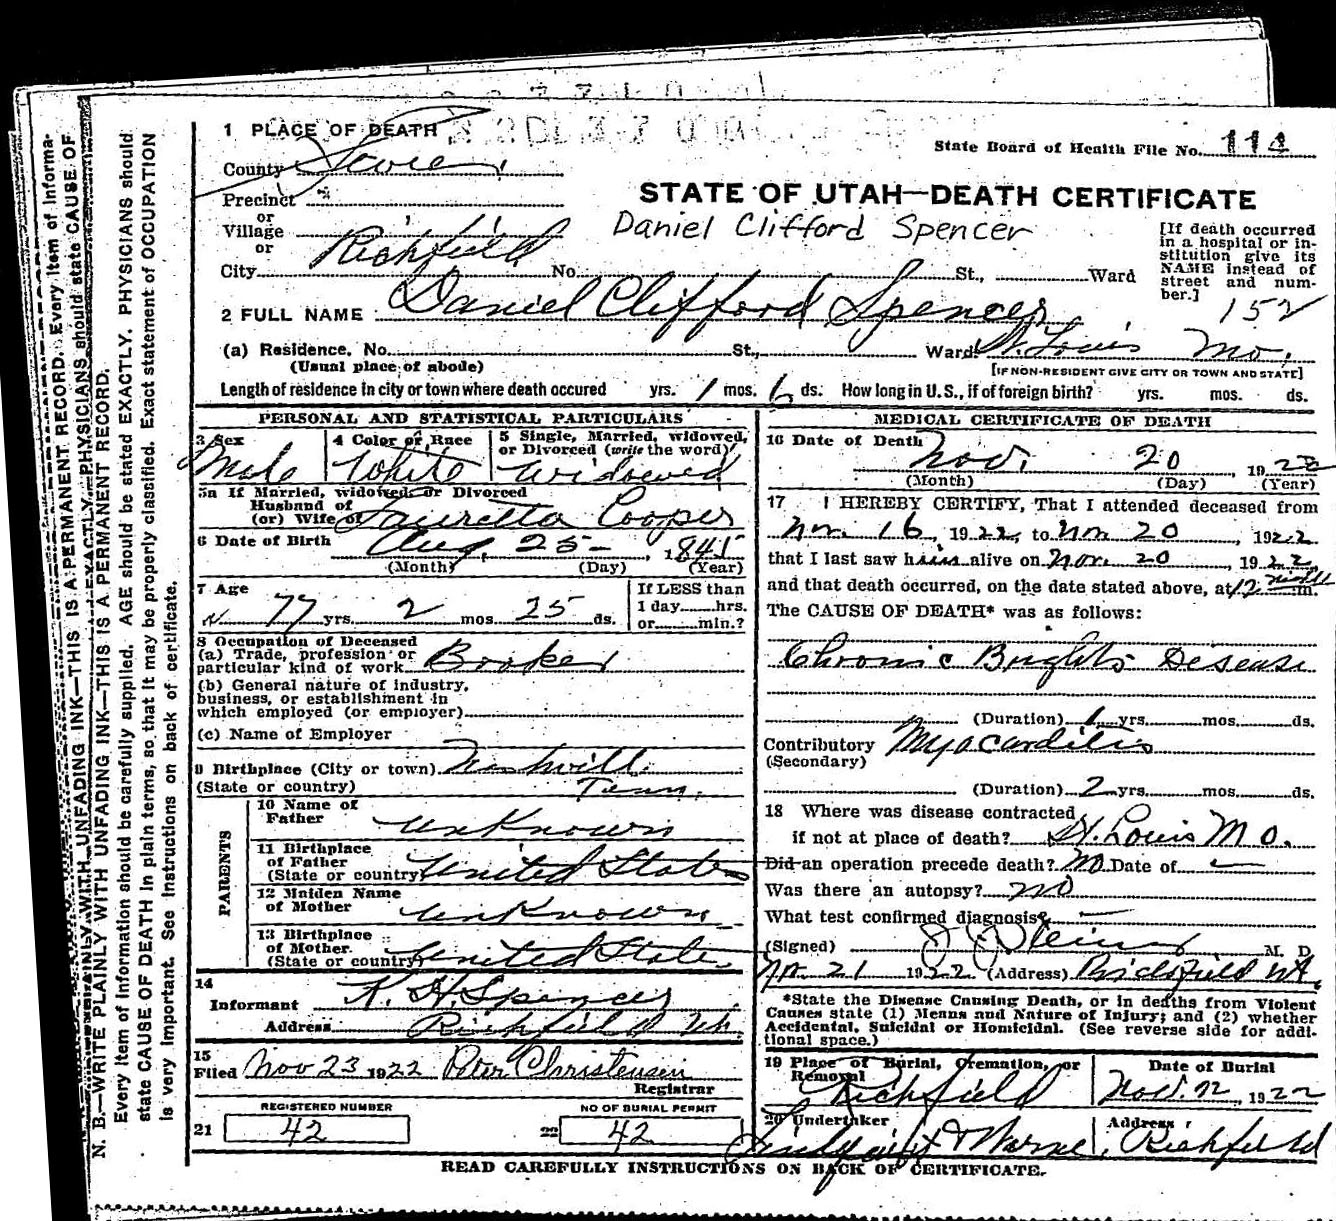 1 PLACE OF DEATH
State Board of Health File No. 114
County Sevier
STATE OF UTAH—DEATH CERTIFICATE
Precinct
or
Village
or
Daniel Clifford Spencer
[If death occurred in a hospital or in-
stitution give its
NAME instead of
street and num-
ber.]
152
City Richfield No. St., Ward
2 FULL NAME Daniel Clifford Spencer
(a) Residence. No. St., Ward St. Louis Mo.
(Usual place of abode)
[IF NON-RESIDENT GIVE CITY OR TOWN AND STATE]
Length of residence in city or town where death occured yrs. 1 mos. 6 ds. How long in U.S., if of foreign birth? yrs. mos. ds.
PERSONAL AND STATISTICAL PARTICULARS
3 Sex
Male
4 Color or Race
White
5 Single, Married, widowed,
or Divorced (write the word)
Widowed
5a If Married, widowed or Divorced
Husband of
(or) Wife of Lauretta Cooper
6 Date of Birth Aug. 25- 1845
(Month) (Day) (Year)
7 Age
77 yrs. 2 mos. 25 ds.
If LESS than
1 day hrs.
or min.?
8 Occupation of Deceased
(a) Trade, profession or
particular kind of work
(b) General nature of industry,
business, or establishment in
which employed (or employer)
(c) Name of Employer
9 Birthplace (City or town) Nashvill
(State or country) Tenn.
PARENTS
10 Name of
Father unKnown
11 Birthplace
of Father
(State or country) United States
12 Maiden Name
of Mother unKnown
13 Birthplace
of Mother.
(State or country) United States
14
Informant K. H. Spencer
Address Richfield Ut.
15
Filed Nov 23 1922 Peter Christensen
Registrar
REGISTERED NUMBER
21 42
NO OF BURIAL PERMIT
22 42
MEDICAL CERTIFICATE OF DEATH
16 Date of Death Nov. 20, 1922
(Month) (Day) (Year)
17 I HEREBY CERTIFY, That I attended deceased from
Nov. 16, 1922, to Nov 20, 1922
that I last saw him alive on Nov. 20, 1922
and that death occurred, on the date stated above, at 12 m.
The CAUSE OF DEATH* was as follows:
Chronic Brights Disease
(Duration) 1 yrs. mos. ds.
Contributory Myocarditis
(Secondary)
(Duration) 2 yrs. mos. ds.
18 Where was disease contracted
if not at place of death? St. Louis MO.
Did an operation precede death? no Date of —
Was there an autopsy? no
What test confirmed diagnosis? —
(Signed) M. D.
Nov. 21 1922 (Address) Richfield Ut.
*State the Disease Causing Death, or in deaths from Violent
Causes state (1) Means and Nature of Injury; and (2) whether
Accidental, Suicidal or Homicidal. (See reverse side for addi-
tional space.)
19 Place of Burial, Cremation, or
Removal
Richfield
Date of Burial
Nov. 22, 1922
20 Undertaker
Address
Richfield
READ CAREFULLY INSTRUCTIONS ON BACK OF CERTIFICATE.
N. B.—WRITE PLAINLY WITH UNFADING INK—THIS IS A PERMANENT RECORD.
Every item of information should be carefully supplied. AGE should be stated EXACTLY. PHYSICIANS should
state CAUSE OF DEATH in plain terms, so that it may be properly classified. Exact statement of OCCUPATION
is very important. See instructions on back of certificate.